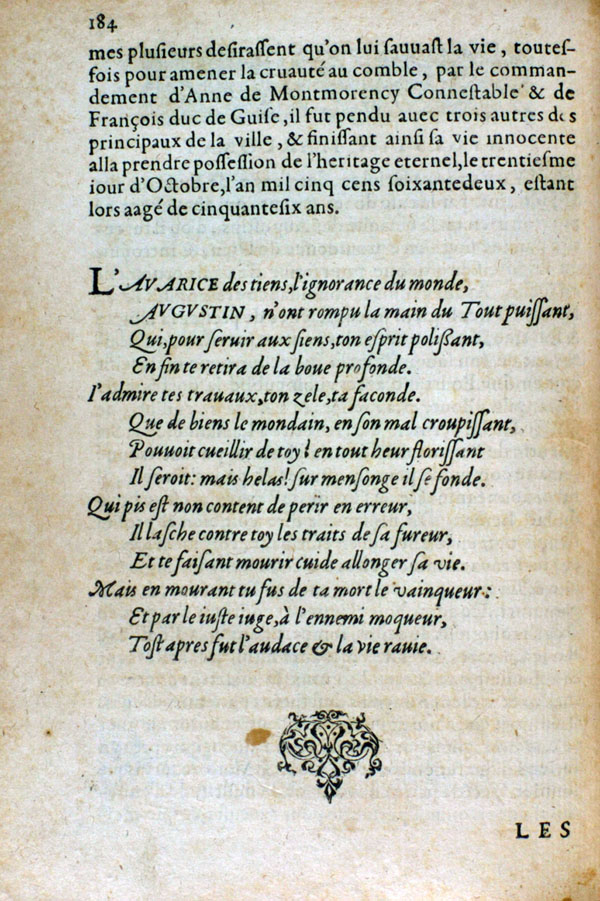 184
mes plusieurs desiraſſent qu'on lui ſauuaſt la vie, touteſ-
fois pour amener la cruauté au comble, par le comman-
dement d'Anne de Montmorency Conneſtable & de
François duc de Guiſe, il fut pendu auec trois autres des
principaux de la ville, & finiſſant ainſi ſa vie innocente
alla prendre poſſeſſion de l'heritage eternel, le trentieſme
iour d'Octobre, l'an mil cinq cens ſoixantedeux, eſtant
lors aagé de cinquanteſix ans.
L'AVARICE des tiens, l'ignorance du monde,
AVGVSTIN, n'ont rompu la main du Tout puiſſant,
Qui, pour ſeruir aux ſiens, ton eſprit polißant,
En fin te retira de la boue profonde.
I'admire tes trauaux, ton zele, ta faconde.
Que de biens le mondain, en ſon mal croupiſſant,
Pouuoit cueillir de toy! en tout heur floriſſant
Il ſeroit: mais helas! ſur menſonge il ſe fonde.
Qui pis eſt non content de perir en erreur,
Il laſche contre toy les traits de ſa fureur,
Et te faiſant mourir cuide allonger ſa vie.
Mais en mourant tu fus de ta mort le vainqueur:
Et par le iuſte iuge, à l'ennemi moqueur,
Toſt apres fut l'audace & la vie rauie.
LES